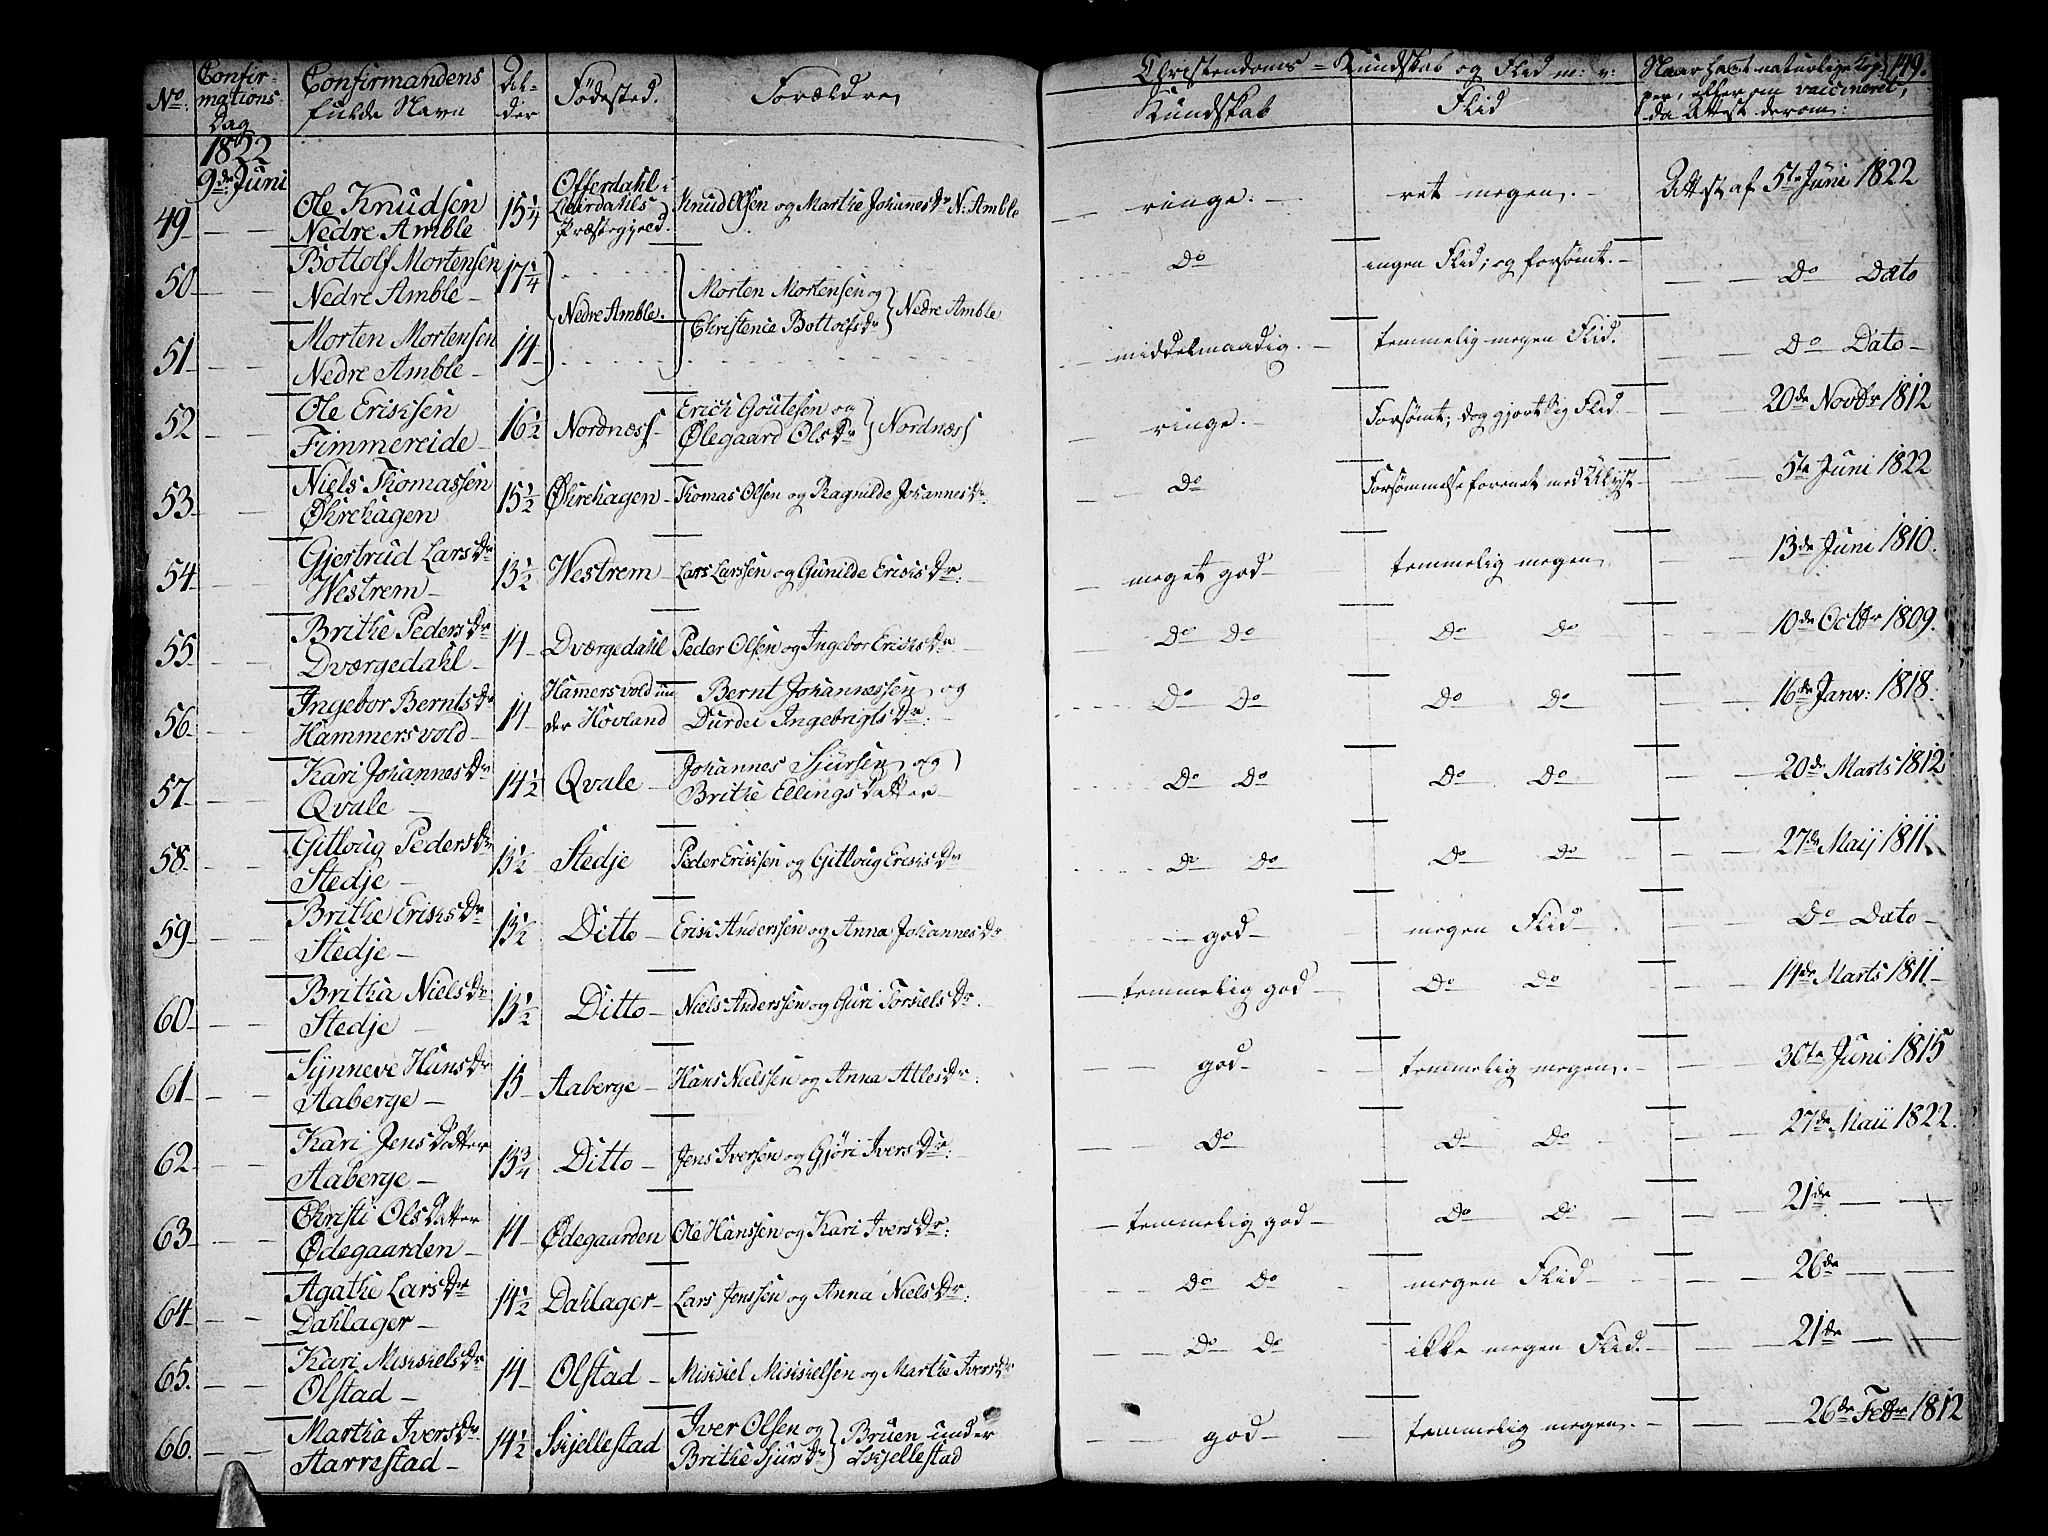 No. Confir- mations- Dag Confirmandens fulde Navn Al- der Fødested. Forældre Christendoms-Kundskab og Flid m: v: Kundskab Flid Naar hapt naturlige Kop- per, eller om vaccineret, da Attest derom: 149.
1822
9de Juni
49 Ole Knudsen Nedre Amble 15 1/4 Offerdahl i Leirdahls Præstegjeld. Knud Olsen og Marthe Johanes Dr N: Amble ringe. ret megen. Attest af 5te Juni 1822
50 Bottolf Mortensen Nedre Amble 17 1/4 Nedre Amble. Morten Mortensen og Christence Bottolfs Dr Nedre Amble Do ingen Flid; og forsømt. Do Dato
51 Morten Mortensen Nedre Amble 14 middelmaadig. temmelig megen Flid. Do Dato
52 Ole Eriksen Fimmereide 16 1/2 Nordnæss Erich Goutesen og Ølegaard Ols Dr Nordnæss ringe. Forsømt; dog gjort sig Flid 20de Novbr 1812
53 Niels Thomassen Øhrehagen 15 1/2 Øhrehagen Thomas Olsen og Ragnilde Johannes Dr. Do Forsømmelse forenet med Ulyst 5te Juni 1822
54 Gjertrud Lars Dr Westrem 13 1/2 Westrem Lars Larssen og Gunilde Eriks Dr: meget god temmelig megen 13de Juni 1810.
55 Brithe Peders Dr Dværgedahl 14 Dværgedahl Peder Olsen og Ingebor Eriks Dr Do Do Do Do 10de Octbr 1809.
56 Ingebor Bernts Dr Hammersvold 14 Hamersvold un der Hovland Bernt Johannessen og Durdei Ingebrigts Dr: Do Do Do Do 16de Janv: 1818.
57 Kari Johannes Dr Qvale 14 1/2 Qvale Johannes Sjursen og Brithe Ellings Datter Do Do Do Do 20de Marts 1812
58 Gitloug Peders Dr Stedje 13 1/2 Stedje Peder Eriksen og Gitloug Eriks Dr Do Do Do Do 27de Maij 1811
59 Brithe Eriks Dr Stedje 13 1/2 Ditto Erik Anderssen og Anna Johannes Dr god megen Flid Do Dato
60 Britha Niels Dr Stedje 13 1/2 Ditto Niels Anderssen og Guri Torkiels Dr. temmelig god Do Do 14de Marts 1811
61 Synneve Hans Dr Aaberge 15 Aaberge Hans Nielssen og Anna Atles Dr: god temmelig megen. 30te Juni 1815
62 Kari Jens Datter Aaberge 13 3/4 Ditto Jens Iversen og Gjøri Ivers Dr: Do Do Do 27de Maii 1822.
63 Christi Ols Datter Ødegaarden 14 Ødegaarden Ole Hanssen og Kari Ivers Dr: temmelig god Do Do 21de
64 Agathe Lars Dr Dahlager 14 1/2 Dahlager Lars Jenssen og Anna Niels Dr: Do Do megen Flid 26de
65. Kari Mikkiels Dr Olstad 14 Olstad Mikkiel Mikkielsen og Marthe Ivers Dr Do Do ikke megen Flid. 21de
66. Martha Ivers Dr Starrestad 14 1/2 Skjellestad Iver Olsen og Brithe Sjurs Dr Bruen under Skjellestad god temmelig megen. 26de Febr 1812